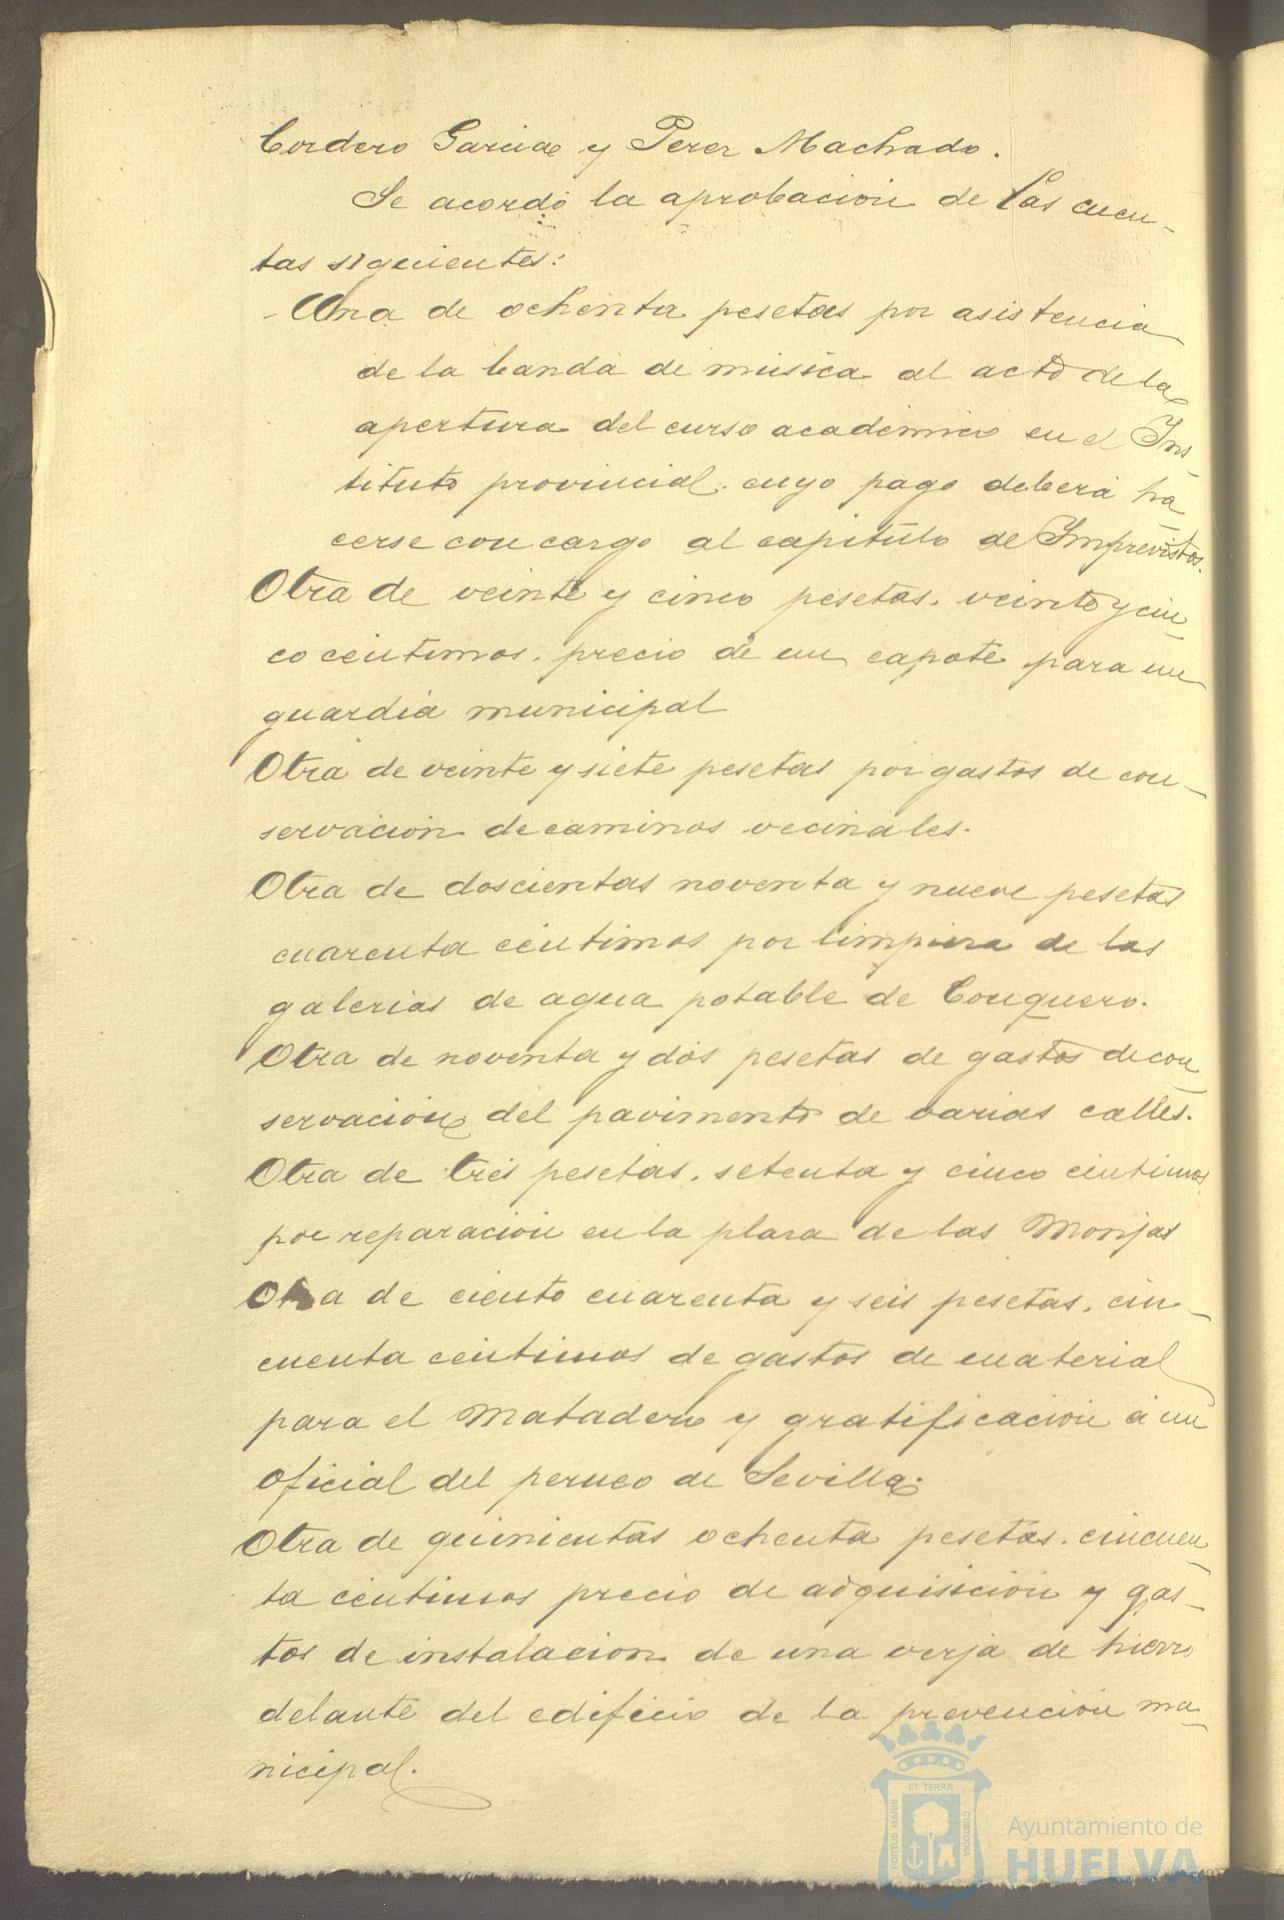 Cordero Garcia y Perez Machado.
Se acordó la aprobacion de las cuen-
tas siguientes:
- Una de ochenta pesetas por asistencia
de la banda de música al acto de la
apertura del curso académico en el Ins-
tituto provincial, cuyo pago deberá ha-
cerse con cargo al capitulo de Imprevistos.
Otra de veinte y cinco pesetas, veinte y cin-
co centimos, precio de un capote para un
guardia municipal
Otra de veinte y siete pesetas por gastos de con-
servacion de caminos vecinales.
Otra de doscientas noventa y nueve pesetas
cuarenta céntimos por limpieza de las
galerias de agua potable de Conquero.
Otra de noventa y dos pesetas de gastos de con-
servacion del pavimento de varias calles.
Otra de tres pesetas, setenta y cinco centimos
por reparacion en la plaza de las Monjas
Otra de ciento cuarenta y seis pesetas, cin-
cuenta centimos de gastos de material
para el Matadero y gratificacion á un
oficial del de Sevilla.
Otra de quinientas ochenta pesetas, cincuen-
ta centimos precio de adquisicion y gas-
tos de instalacion de una verja de hierro
delante del edificio de la prevencion mu-
nicipal.
PORTUS MARIS
ET TERRÆ
CUSTODIA
Ayuntamiento de
HUELVA